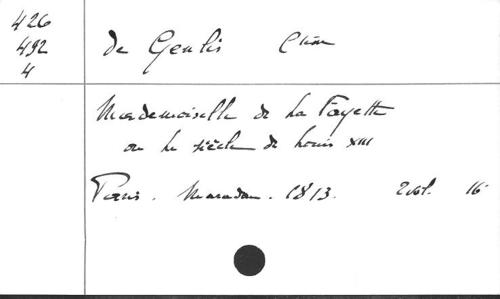 426
492
4
de Genlis Ctsse
Mademoiselle de La Fayette
ou le siècle de Louis XIII
Paris. Maradan. 1813. 2 vol. 16°